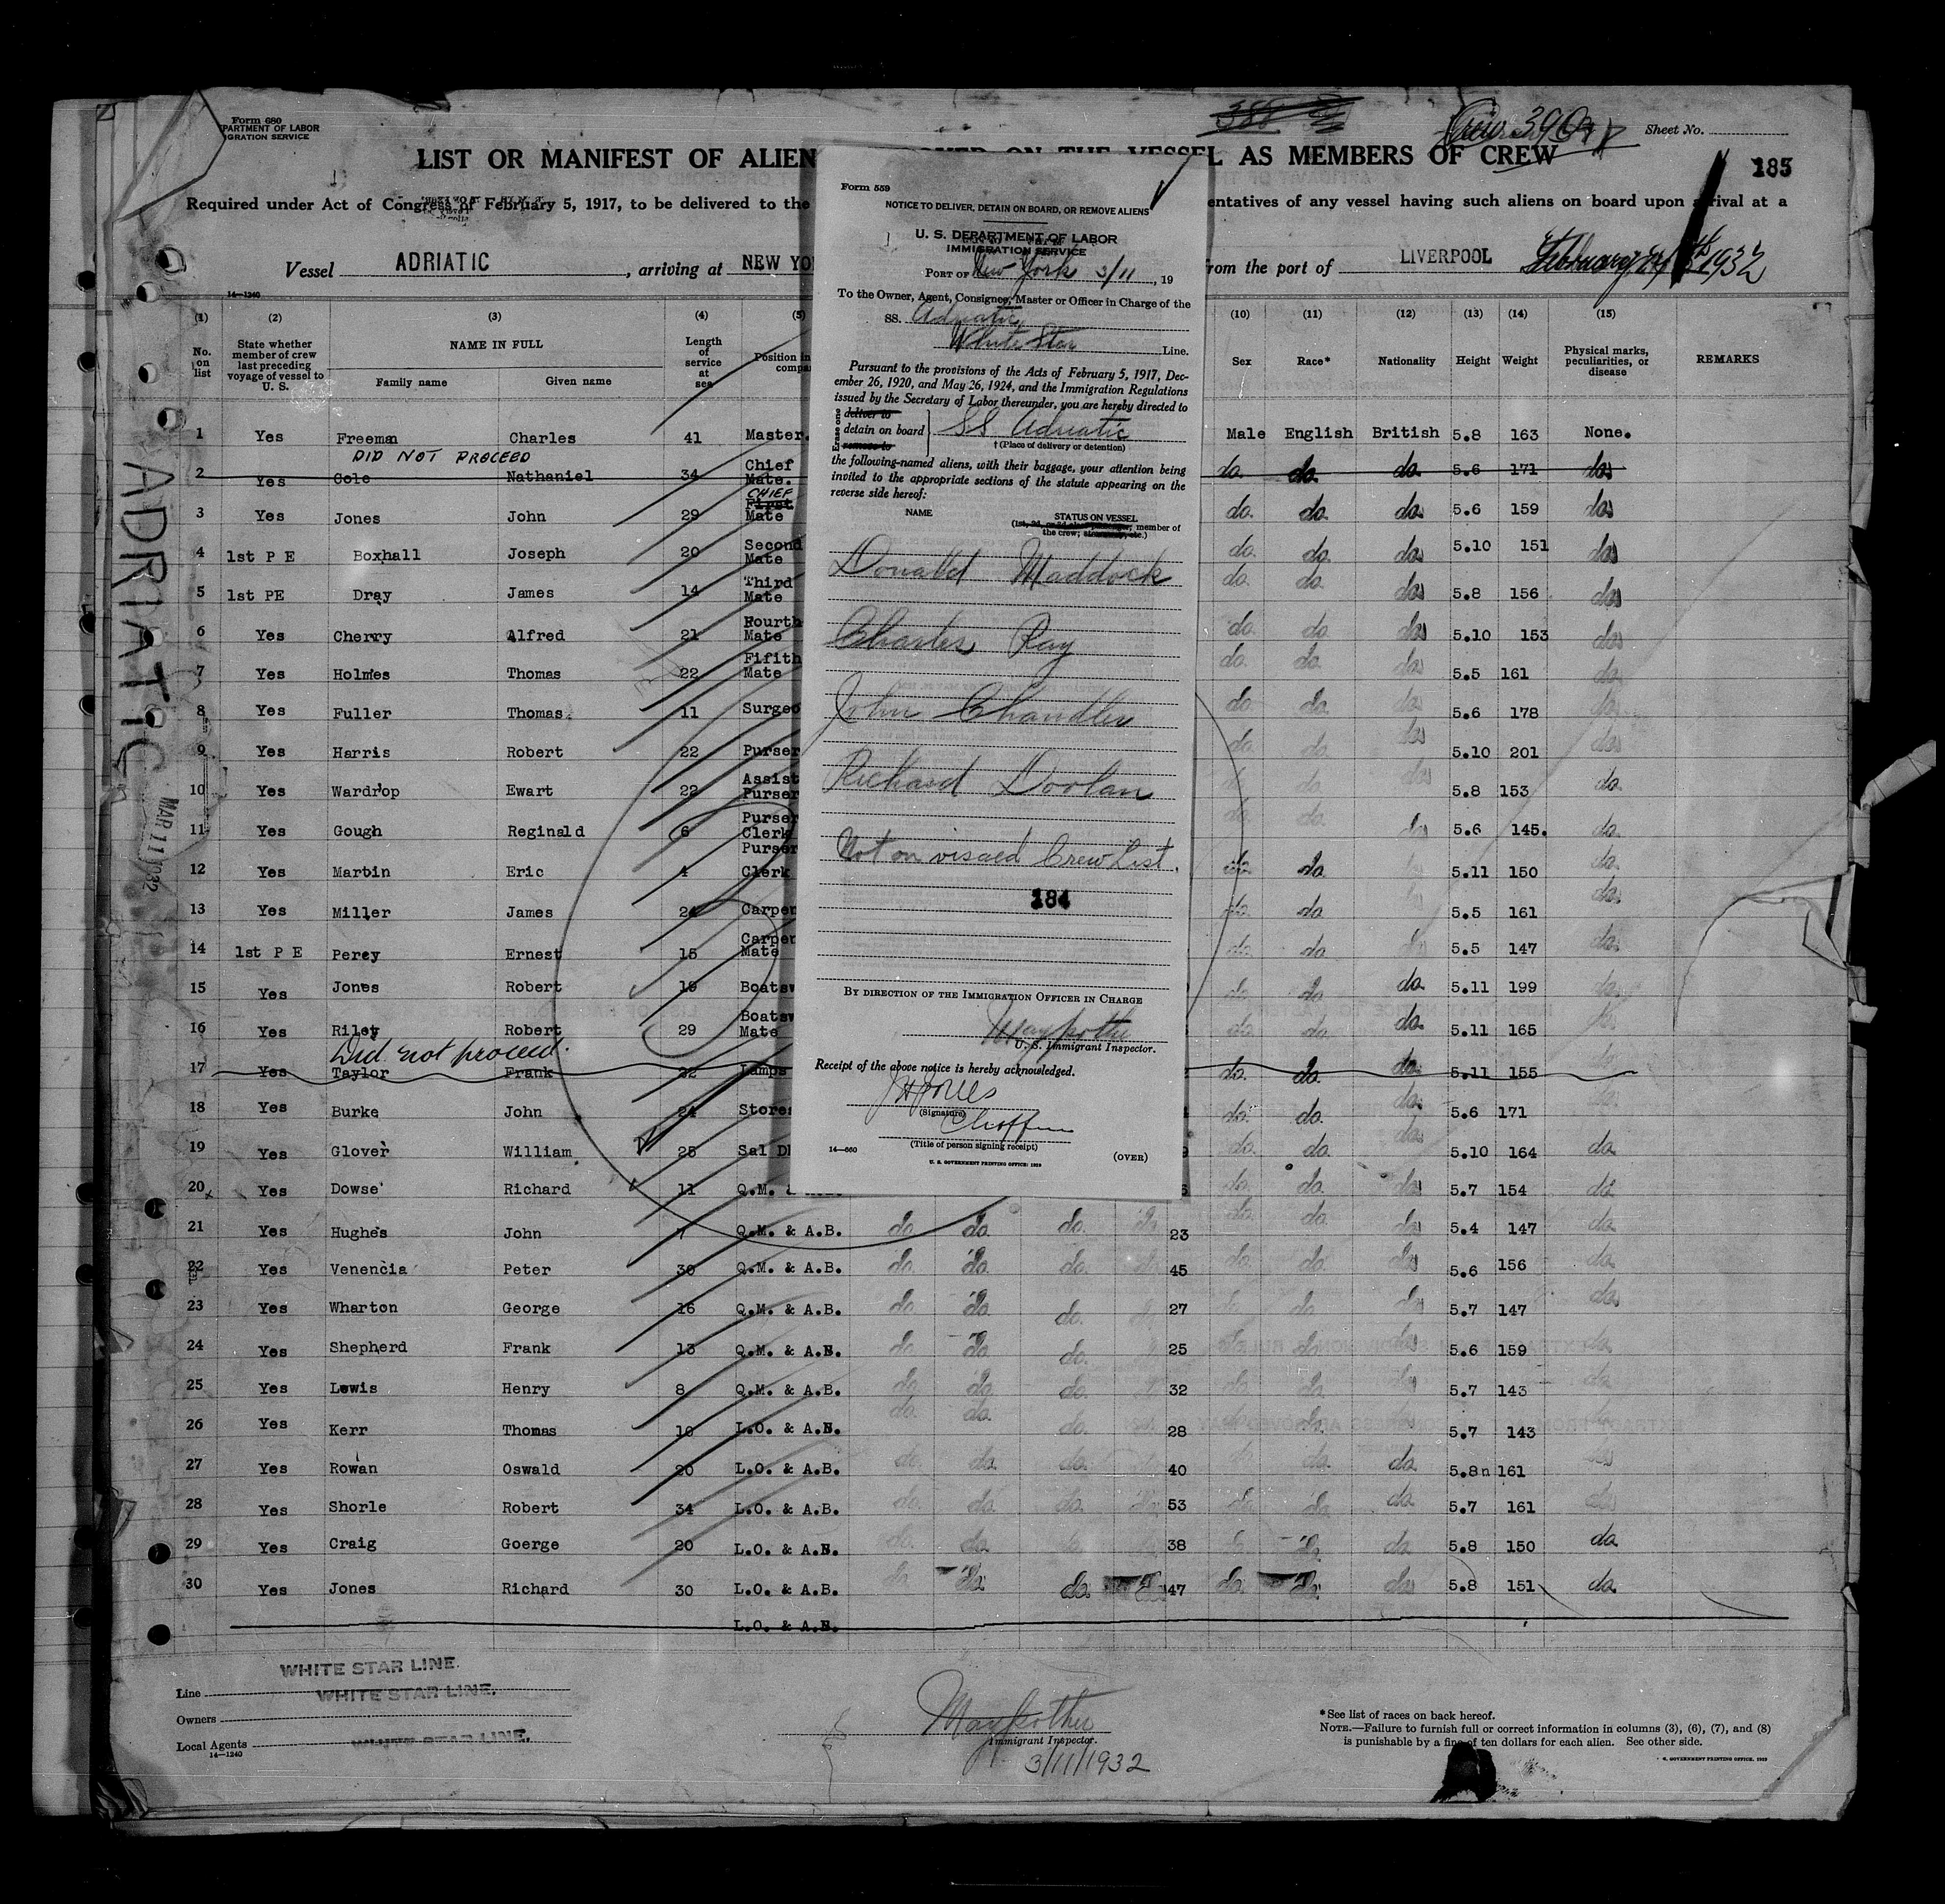 Form 680
PARTMENT OF LABOR
GRATION SERVICE
Crew 390
Sheet No.
185
LIST OR MANIFEST OF ALIEN VESSEL AS MEMBERS OF CREW
Required under Act of Congress of February 5, 1917, to be delivered to the entatives of any vessel having such aliens on board upon arrival at a
Vessel ADRIATIC, arriving at NEW YO rom the port of LIVERPOOL 1932
14—1240
(1) (2) (3) (4) (5) (10) (11) (12) (13) (14) (15)
No. on list
State whether member of crew last preceding voyage of vessel to U. S.
NAME IN FULL
Family name Given name
Length of service at sea
Position in compa
Sex Race* Nationality Height Weight
Physical marks, peculiarities, or disease
REMARKS
1 Yes Freeman Charles 41 Master. Male English British 5.8 163 None.
DID NOT PROCEED
2 Yes Cole Nathaniel 34 Chief Mate. do. do. do. 5.6 171 do
3 Yes Jones John 29 CHIEF First Mate do. do. do. 5.6 159 do
4 1st P E Boxhall Joseph 20 Second Mate do. do. do. 5.10 151 do
5 1st PE Dray James 14 Third Mate do. do. do. 5.8 156 do
6 Yes Cherry Alfred 21 Fourth Mate do. do. do. 5.10 153 do
7 Yes Holmes Thomas 22 Fifith Mate do. do. do. 5.5 161 do
8 Yes Fuller Thomas. 11 Surgeo do. do. do. 5.6 178 do
9 Yes Harris Robert 22 Purser do. do. do. 5.10 201 do
10 Yes Wardrop Ewart 22 Assist Purser do. do. do. 5.8 153 do.
11 Yes Gough Reginald 6 Purser Clerk do. do. do 5.6 145. do.
12 Yes Martin Eric 4 Purser Clerk do. do. 5.11 150 do.
13 Yes Miller James 24 Carpen do. do. 5.5 161 do.
14 1st P E Percy Ernest 15 Carpen Mate do. do. do 5.5 147 do.
15 Yes Jones Robert 19 Boatsw do. do. do. 5.11 199 do.
16 Yes Riley Robert 29 Boatsw Mate do. do. do. 5.11 165 do
Did not proceed.
17 Yes Taylor Frank 32 Lamps do. do. do. 5.11 155 do
18 Yes Burke John 24 Stores do. do. do. 5.6 171
19 Yes Glover William 25 Sal D do. do. do. 5.10 164 do.
20 Yes Dowse Richard 11 Q.M. do. do. do. 5.7 154 do
21 Yes Hughes John 7 Q.M. & A.B. do. do. do. do. 23 do. do. do. 5.4 147 do.
22 Yes Venencia Peter 30 Q.M. & A.B. do. do. do. do. 45 do. do. do. 5.6 156 do.
23 Yes Wharton George 16 Q.M. & A.B. do. do. do. 27 do. do 5.7 147 do
24 Yes Shepherd Frank 13 Q.M. & A.B. do. do. do. 25 do 5.6 159 do
25 Yes Lewis Henry 8 Q.M. & A.B. do. do. do. 32 do. do 5.7 143 do
26 Yes Kerr Thomas 10 L.O. & A.B. do. do. do. 28 do. do 5.7 143
27 Yes Rowan Oswald 20 L.O. & A.B. do. do. do. 40 do. do. 5.8n 161
28 Yes Shorle Robert 34 L.O. & A.B. do. do. do. 53 do. do. 5.7 161
29 Yes Craig Goerge 20 L.O. & A.B. do. do. 38 do. do. 5.8 150 do.
30 Yes Jones Richard 30 L.O. & A.B. do. do. 47 do. do. do. 5.8 151 do.
L.O. & A.B.
ADRIATIC
MAR 11 1932
Form 559
NOTICE TO DELIVER, DETAIN ON BOARD, OR REMOVE ALIENS
U. S. DEPARTMENT OF LABOR
IMMIGRATION SERVICE
PORT OF New York 3/11, 19
To the Owner, Agent, Consignee, Master or Officer in Charge of the
SS. Adriatic
White Star Line.
Pursuant to the provisions of the Acts of February 5, 1917, Dec-
ember 26, 1920, and May 26, 1924, and the Immigration Regulations
issued by the Secretary of Labor thereunder, you are hereby directed to
Erase one
deliver to
detain on board SS Adriatic
remove to
† (Place of delivery or detention)
the following-named aliens, with their baggage, your attention being
invited to the appropriate sections of the statute appearing on the
reverse side hereof:
NAME STATUS ON VESSEL
member of
the crew, etc.)
Donald Maddock
Charles Ray
John Chandler
Richard Doolan
Not on visaed Crew List.
184
BY DIRECTION OF THE IMMIGRATION OFFICER IN CHARGE
U. S. Immigrant Inspector.
Receipt of the above notice is hereby acknowledged.
(Signature)
Ch offr
(Title of person signing receipt)
14—660 (OVER)
U. S. GOVERNMENT PRINTING OFFICE: 1929
WHITE STAR LINE.
Line
WHITE STAR LINE.
Owners
Local Agents WHITE STAR LINE.
14—1240
Immigrant Inspector.
3/11/1932
*See list of races on back hereof.
NOTE.—Failure to furnish full or correct information in columns (3), (6), (7), and (8)
is punishable by a fine of ten dollars for each alien. See other side.
GOVERNMENT PRINTING OFFICE: 1929